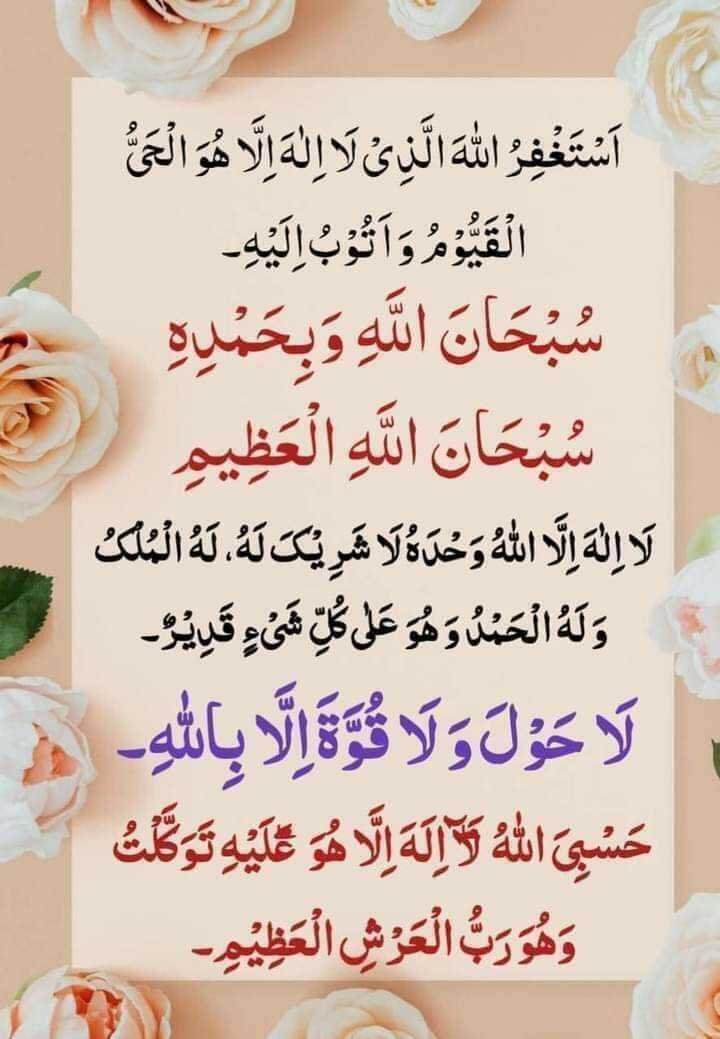 اَسْتَغْفِرُ اللّٰهَ الَّذِىْ لَا اِلٰهَ اِلَّا هُوَ الْحَىُّ
الْقَيُّوْمُ وَ اَتُوْبُ اِلَيْهِ۔
سُبْحَانَ اللَّهِ وَبِحَمْدِهِ
سُبْحَانَ اللَّهِ الْعَظِيمِ
لَا اِلٰهَ اِلَّا اللّٰهُ وَحْدَهٗ لَا شَرِيْكَ لَهٗ، لَهُ الْمُلْكُ
وَ لَهُ الْحَمْدُ وَ هُوَ عَلٰى كُلِّ شَىْءٍ قَدِيْرٌ۔
لَا حَوْلَ وَ لَا قُوَّةَ اِلَّا بِاللّٰهِ۔
حَسْبِىَ اللّٰهُ لَآ اِلَهَ اِلَّا هُوَ ؕ عَلَيْهِ تَوَكَّلْتُ
وَهُوَ رَبُّ الْعَرْشِ الْعَظِيْمِ۔